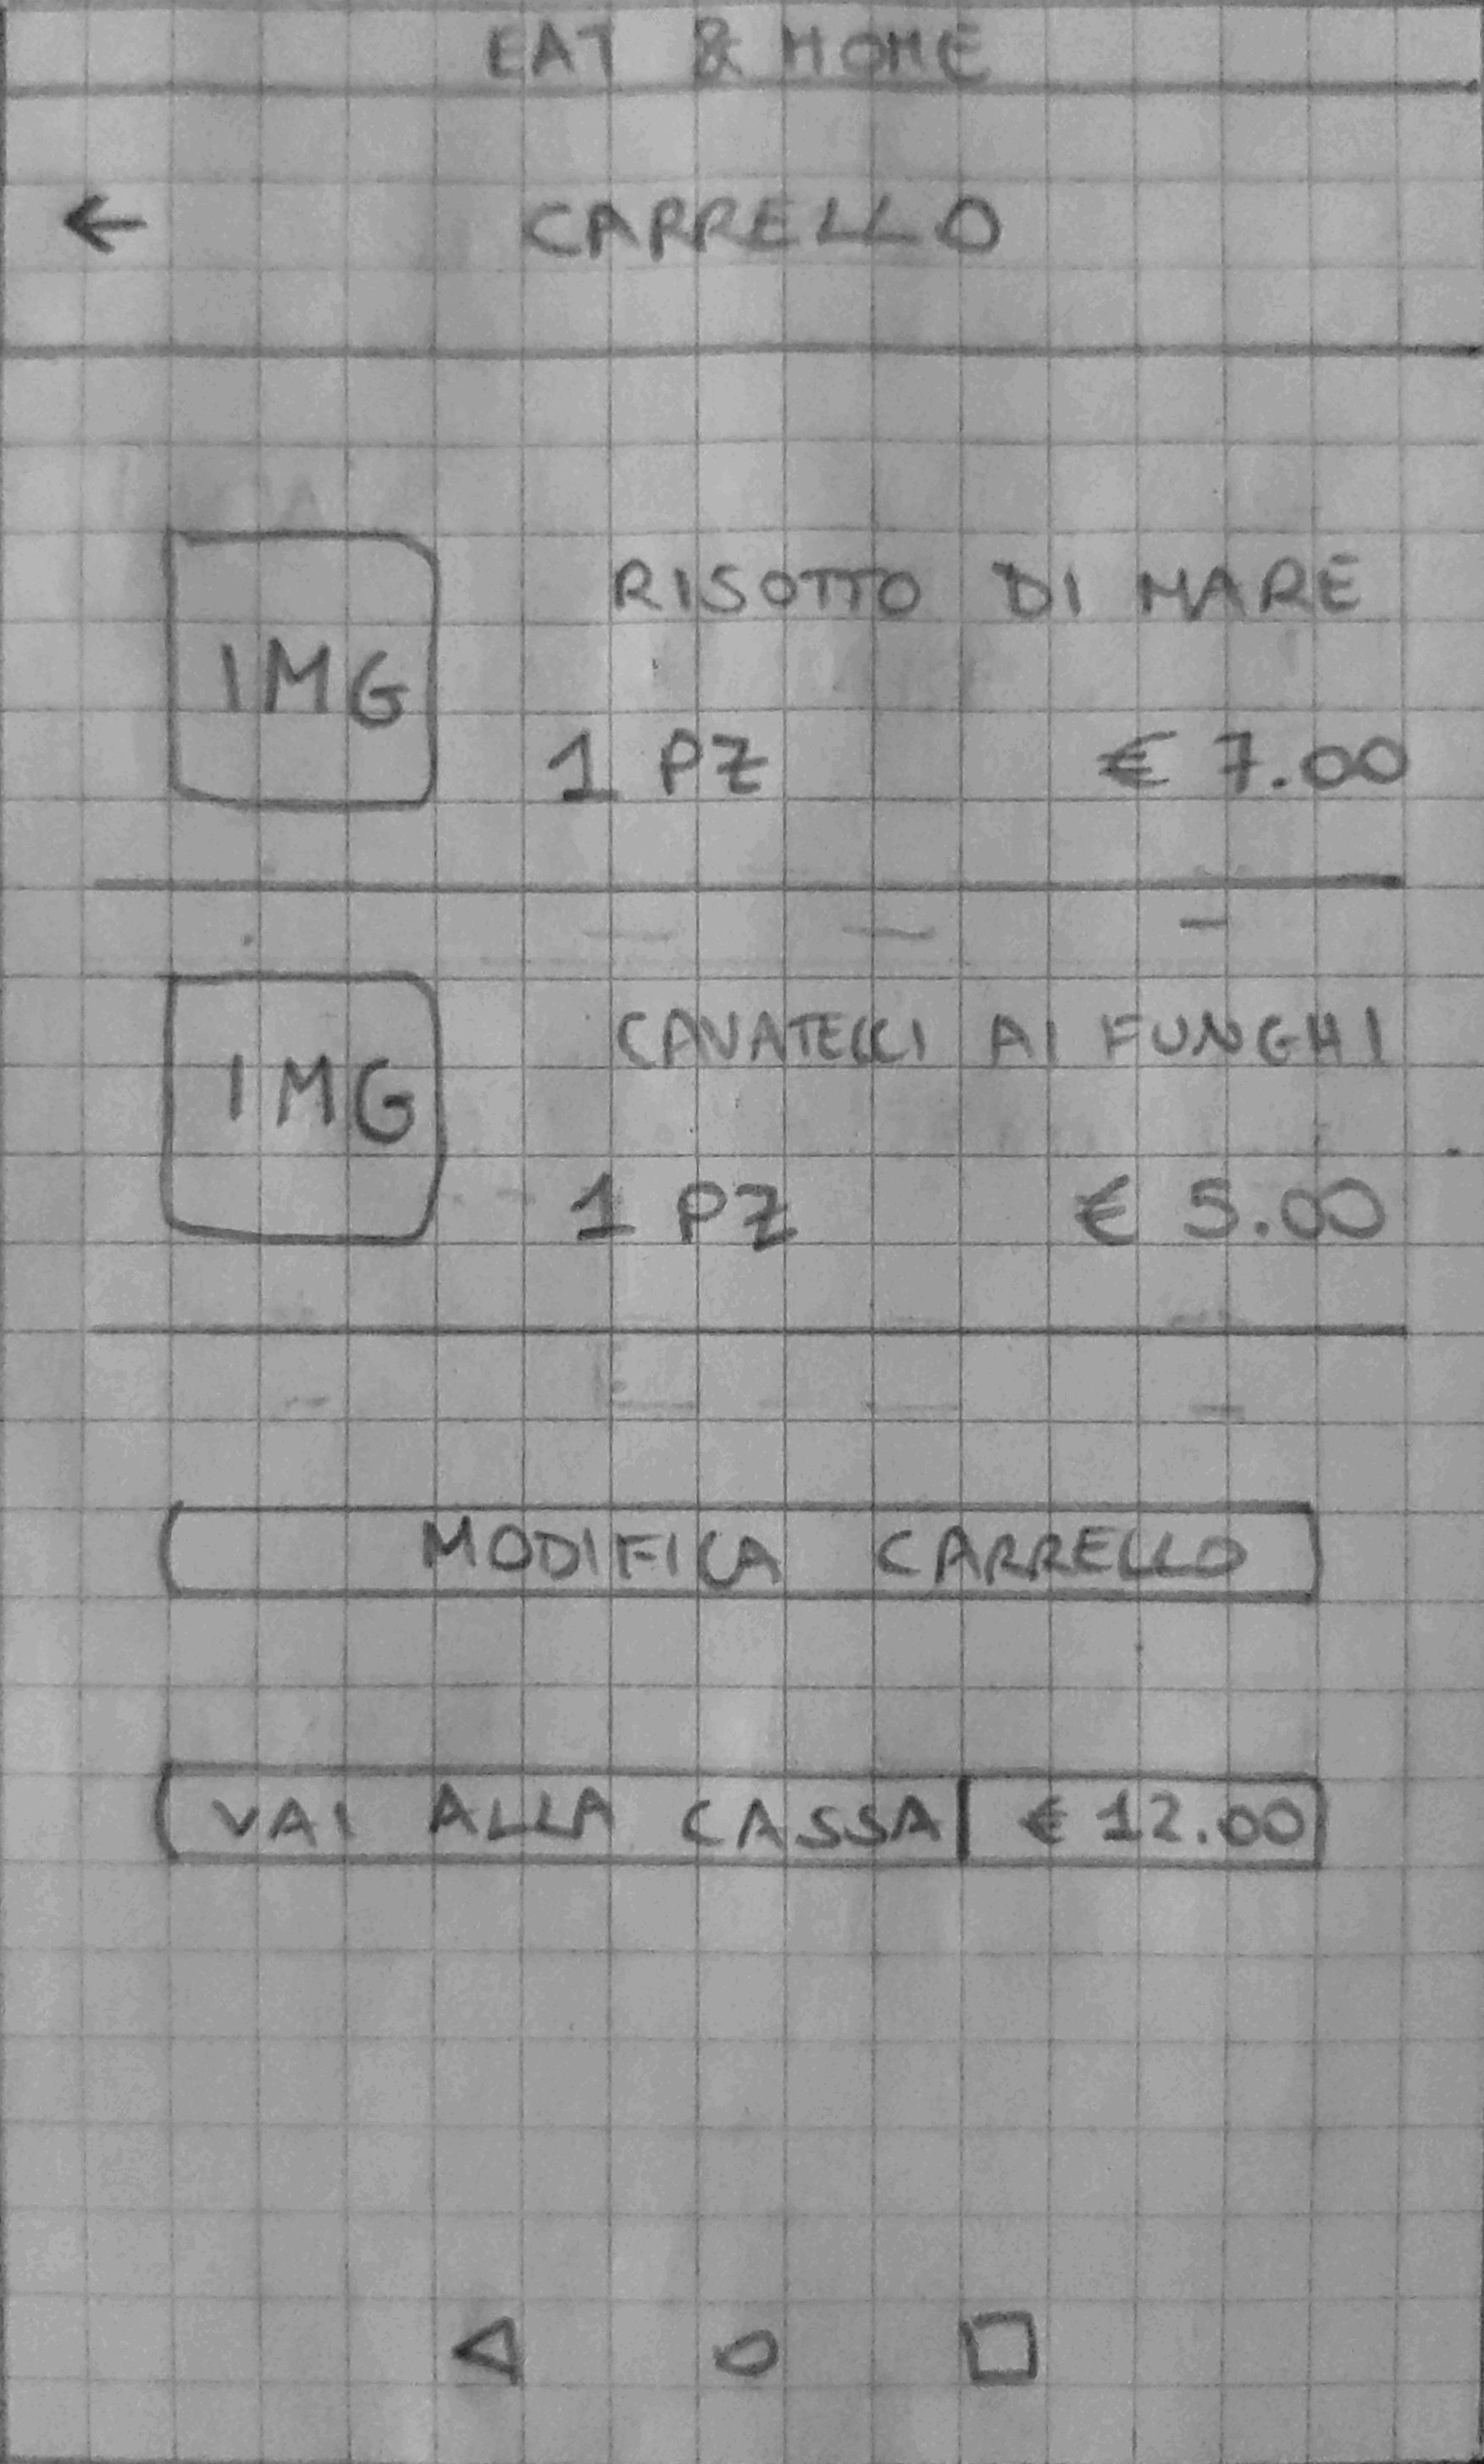 EAT & HOME
← CARRELLO
IMG
RISOTTO DI MARE
1 PZ € 7.00
IMG
CAVATELLI AI FUNGHI
1 PZ € 5.00
MODIFICA CARRELLO
VAI ALLA CASSA | € 12.00